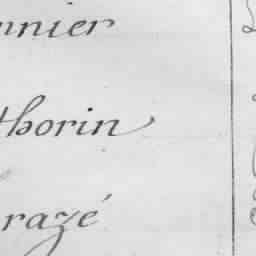 nnier
thorin
razé